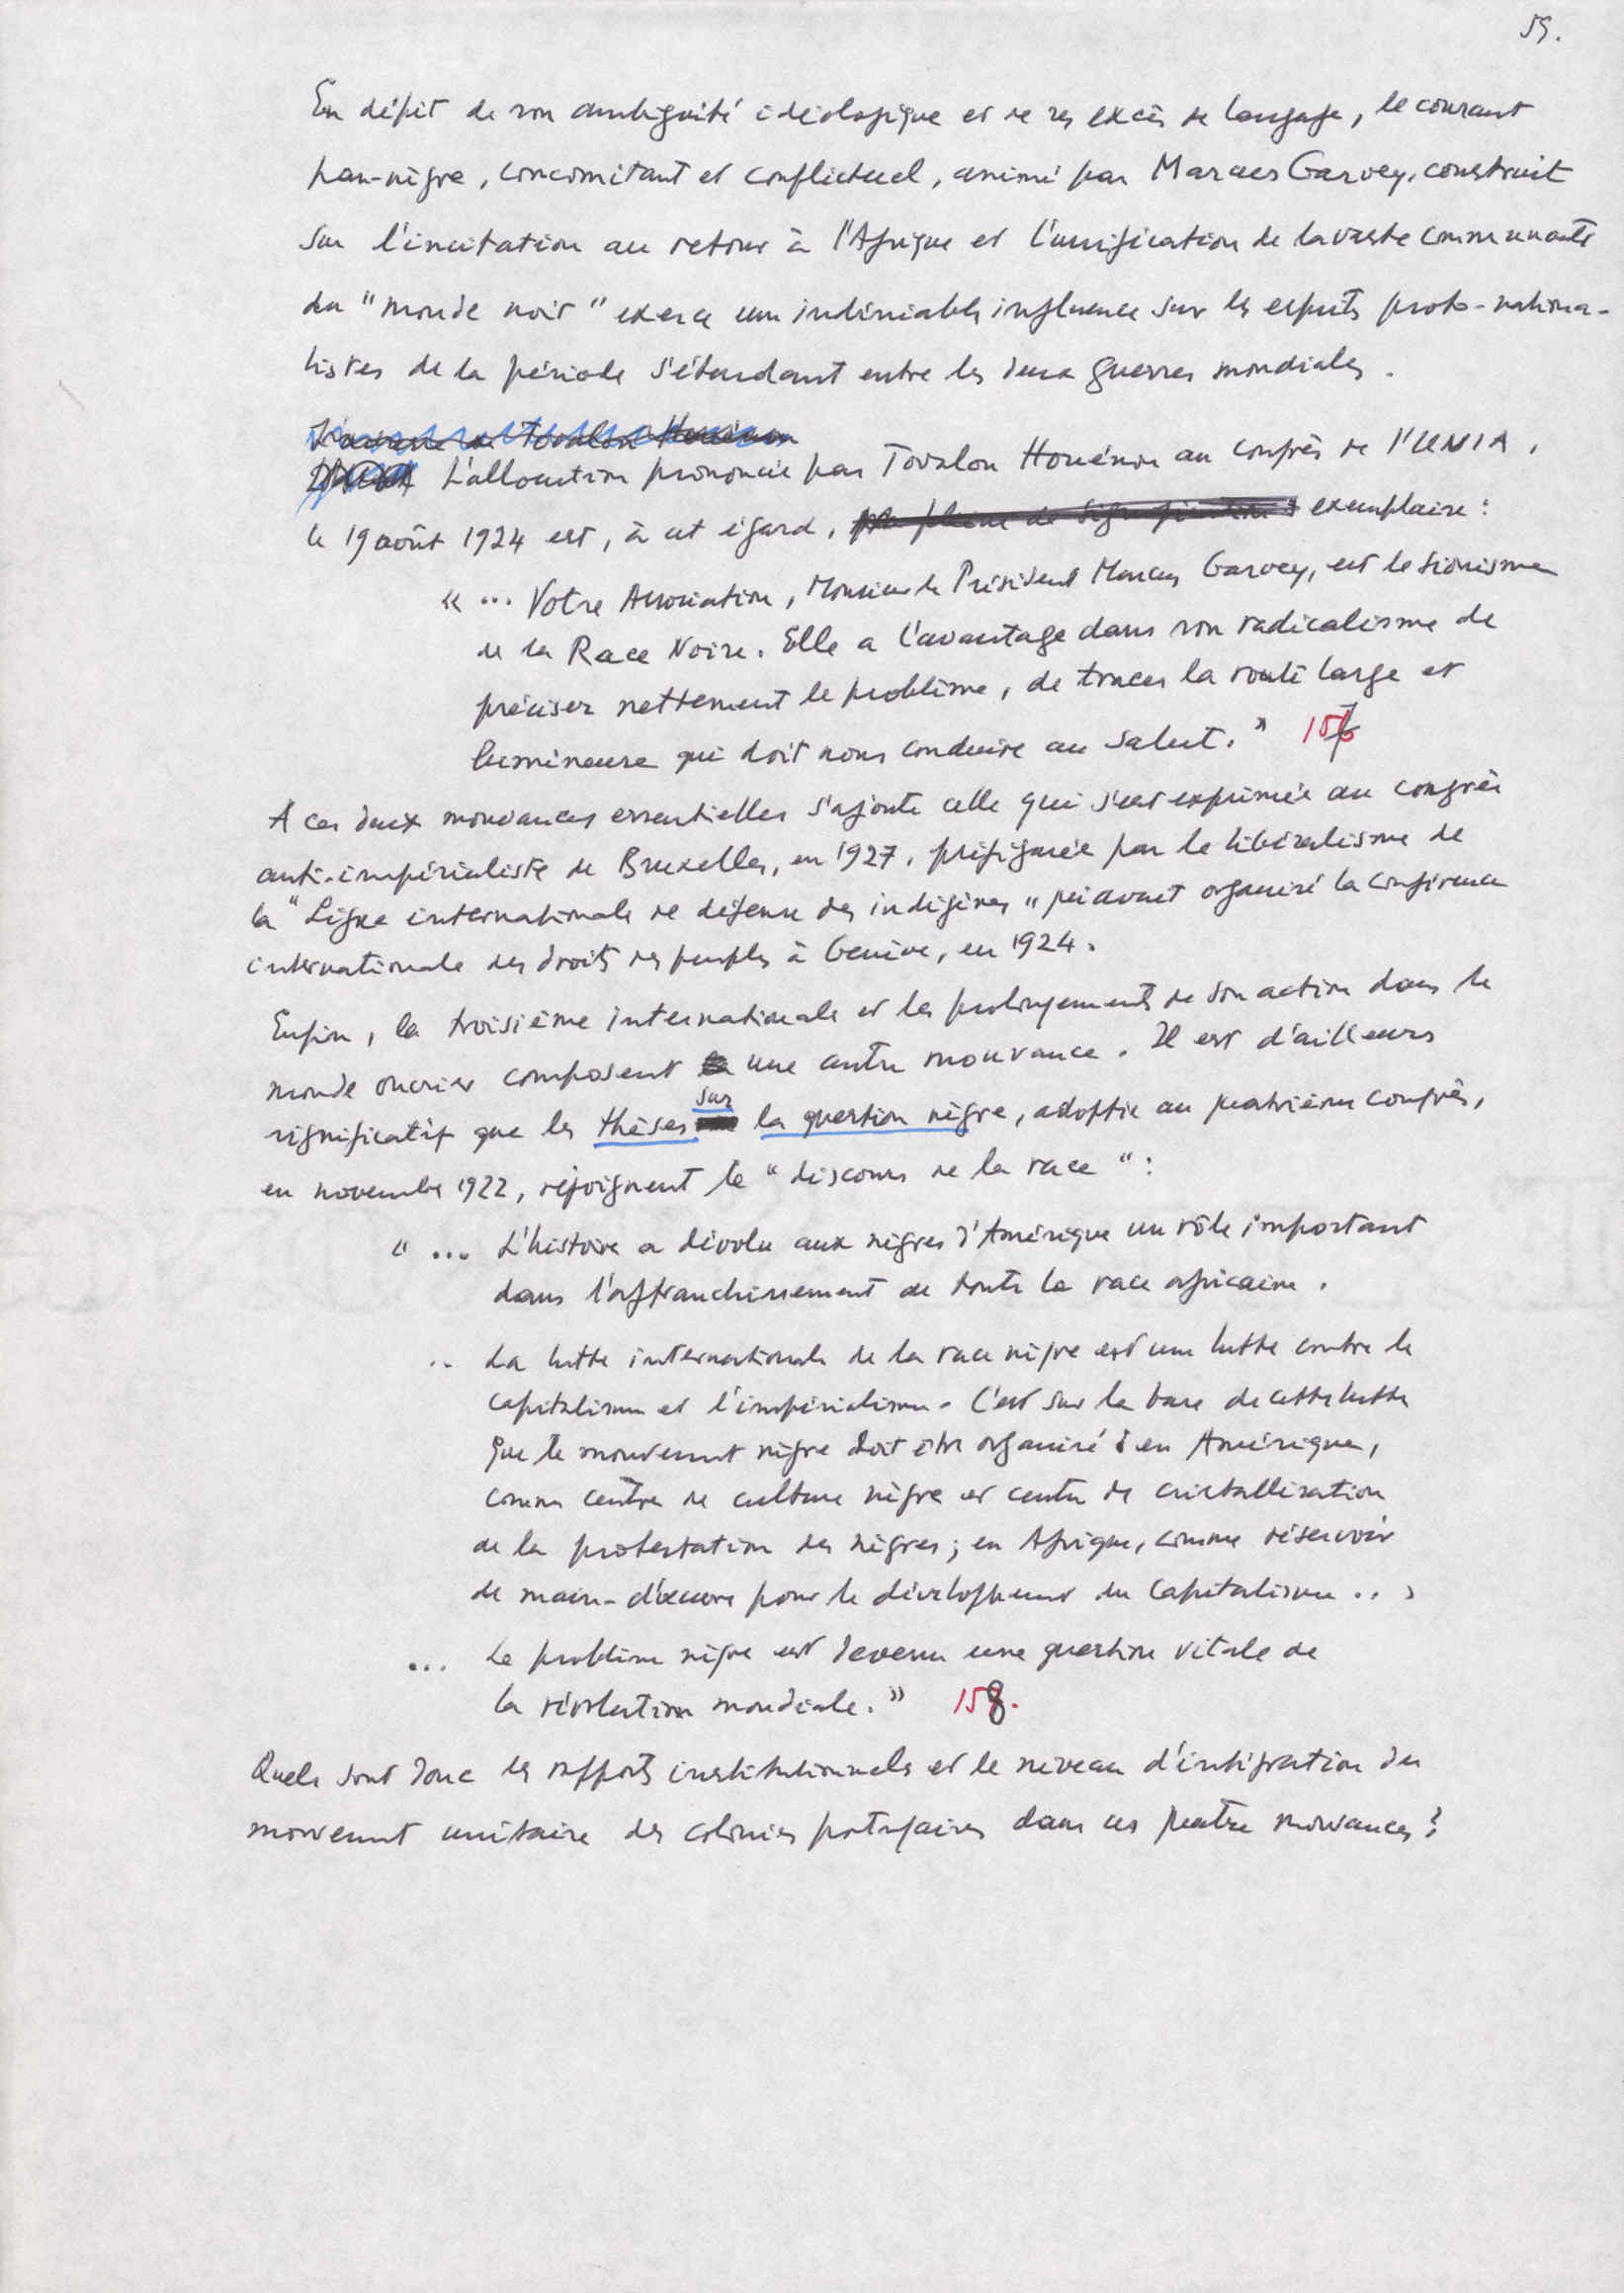 59.
En dépit de son ambiguïté idéologique et de ses excès de langage, le courant
pan-nègre, concomitant et conflictuel, animé par Marcus Garvey, construit
sur l'incitation au retour à l'Afrique et l'unification de la vaste communauté
du "monde noir" exerce une indéniable influence sur les esprits proto-nationa-
listes de la période s'étendant entre les deux guerres mondiales.
L'allocution prononcée par Tovalou Houénou au congrès de l'UNIA,
le 19 août 1924 est, à cet égard, exemplaire :
« ... Votre Association, Monsieur le Président Marcus Garvey, est le sionisme
de la Race Noire. Elle a l'avantage dans son radicalisme de
préciser nettement le problème, de tracer la route large et
lumineuse qui doit nous conduire au salut. » 157
A ces deux mouvances essentielles s'ajoute celle qui s'est exprimée au congrès
anti-impérialiste de Bruxelles, en 1927, préfigurée par le libéralisme de
la "Ligue internationale de défense des indigènes" qui avait organisé la conférence
internationale des droits des peuples à Genève, en 1924.
Enfin, la troisième internationale et les prolongements de son action dans le
monde ouvrier composent une autre mouvance. Il est d'ailleurs
significatif que les thèses sur la question nègre, adoptée au quatrième congrès,
en novembre 1922, rejoignent le "discours de la race" :
" ... L'histoire a dévolu aux nègres d'Amérique un rôle important
dans l'affranchissement de toute la race africaine.
.. La lutte internationale de la race nègre est une lutte contre le
capitalisme et l'impérialisme. C'est sur la base de cette lutte
que le mouvement nègre doit être organisé : en Amérique,
comme centre de culture nègre et centre de cristallisation
de la protestation des nègres ; en Afrique, comme réservoir
de main-d'œuvre pour le développement du Capitalisme ...
... Le problème nègre est devenu une question vitale de
la révolution mondiale. » 158.
Quels sont donc les rapports institutionnels et le niveau d'intégration du
mouvement unitaire des colonies portugaises dans ces quatre mouvances ?